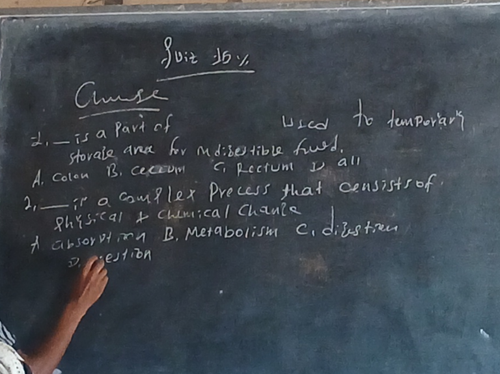 Quiz 15%
Choose
1. __ is a part of used to temporary
storage area for indigestible food.
A. Colon B. Cecum C. Rectum D all
2. __ is a complex process that consists of
physical & chemical change
A absorption B. Metabolism C. digestion
D.